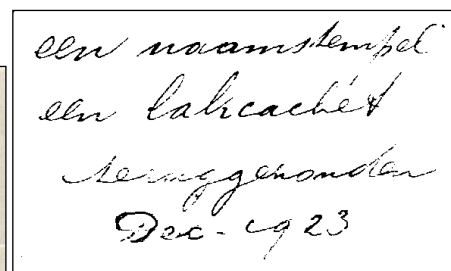 een naamstempel
een lakcachét
teruggevonden
Dec - 1923